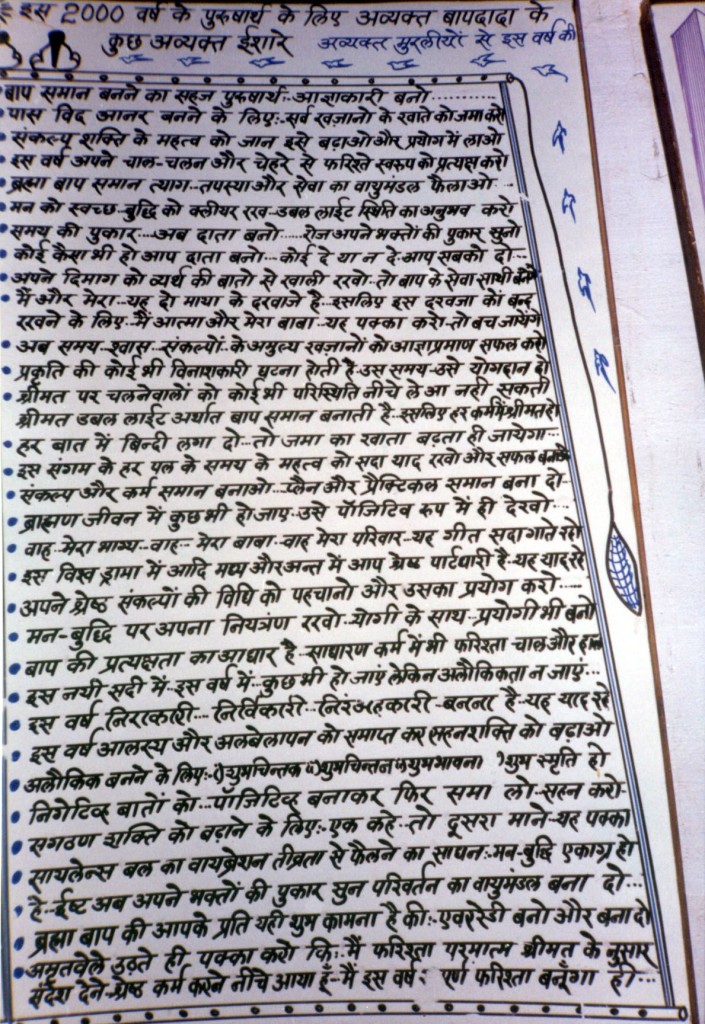 इस 2000 वर्ष के पुरुषार्थ के लिए अव्यक्त बापदादा के
कुछ अव्यक्त ईशारे अव्यक्त मुरलीयों से इस वर्ष की
बाप समान बनने का सहज पुरुषार्थ:- आज्ञाकारी बनो.........
पास विद आनर बनने के लिए:- सर्व खज़ानो के खाते को जमा करो
• संकल्प शक्ति के महत्व को जान इसे बढ़ाओ और प्रयोग में लाओ
• इस वर्ष अपने चाल-चलन और चेहरे से फरिश्ते स्वरूप को प्रत्यक्ष करो
• ब्रह्मा बाप समान त्याग-तपस्या और सेवा का वायुमंडल फैलाओ...
• मन को स्वच्छ-बुद्धि को क्लीयर रख-डबल लाईट स्थिति का अनुभव करो
• समय की पुकार...अब दाता बनो....रोज अपने भक्तों की पुकार सुनो
• कोई कैसा भी हो आप दाता बनो...कोई दे या न दे-आप सबको दो...
• अपने दिमाग को व्यर्थ की बातो से खाली रखो-तो बाप के सेवा साथी बनेंगे
• मैं और मेरा-यह दो माया के दरवाजे है-इसलिए इस दरवजा को बन्द
रखने के लिए-मैं आत्मा और मेरा बाबा-यह पक्का करो-तो बच जायेंगे
• अब समय-श्वास-संकल्पों के अमुल्य खज़ानों को आज्ञाप्रमाण सफल करो
• प्रकृति की कोई भी विनाशकारी घटना होती है-उस समय-उसे योगदान दो
• श्रीमत पर चलनेवालों को कोई भी परिस्थिति नीचे ले आ नही सकती
श्रीमत डबल लाईट अर्थात बाप समान बनाती है-इसलिए हर कर्म में श्रीमत हो
• हर बात में बिन्दी लगा दो...तो जमा का खाता बढ़ता ही जायेगा...
• इस संगम के हर पल के समय के महत्व को सदा याद रखो और सफल
• संकल्प और कर्म समान बनाओ...प्लैन और प्रैक्टिकल समान बना दो...
• ब्राह्मण जीवन में कुछ भी हो जाए-उसे पॉजिटिव रूप में ही देखो...
• वाह-मेरा भाग्य-वाह-मेरा बाबा-वाह मेरा परिवार-यह गीत सदा गाते रहो
• इस विश्व ड्रामा में आदि मध्य और अन्त में आप श्रेष्ठ पार्टधारी है-यह याद रहे
• अपने श्रेष्ठ संकल्पों की विधि को पहचानो और उसका प्रयोग करो.....
• मन-बुद्धि पर अपना नियंत्रण रखो-योगी के साथ-प्रयोगी भी बनो
• बाप की प्रत्यक्षता का आधार है-साधारण कर्म में भी फरिश्ता चाल और
• इस नयी सदी में-इस वर्ष में-कुछ भी हो जाएं लेकिन अलौकिकता न जाएं...
• इस वर्ष निराकारी...निर्विकारी-निरंअहकारी-बनना है-यह याद रहे
• इस वर्ष आलस्य और अलबेलापन को समाप्त कर सहनशक्ति को बढ़ाओ
• अलौकिक बनने के लिए:- शुभचिन्तक शुभचिन्तन शुभभावना शुभ स्मृति हो
• निगेटिव बातों को...पॉजिटिव बनाकर फिर समा लो-सहन करो-
• सगठण शक्ति को बढ़ाने के लिए:- एक कहे-तो दूसरा माने-यह पक्का
• सायलेन्स बल का वायब्रेशन तीव्रता से फैलने का साधन:-मन-बुद्धि एकाग्र हो
• हे-ईष्ट अब अपने भक्तों की पुकार सुन परिवर्तन का वायुमंडल बना दो...
• ब्रह्मा बाप की आपके प्रति यही शुभ कामना है की:- एवररेडी बनो और बना दो
• अमृतवेले उठते ही पक्का करो कि:- मैं फरिश्ता परमात्म श्रीमत के नुसार
संदेश देने-श्रेष्ठ कर्म करने नीचे आया हूँ-मैं इस वर्ष: पूर्ण फरिश्ता बनूँगा ही...